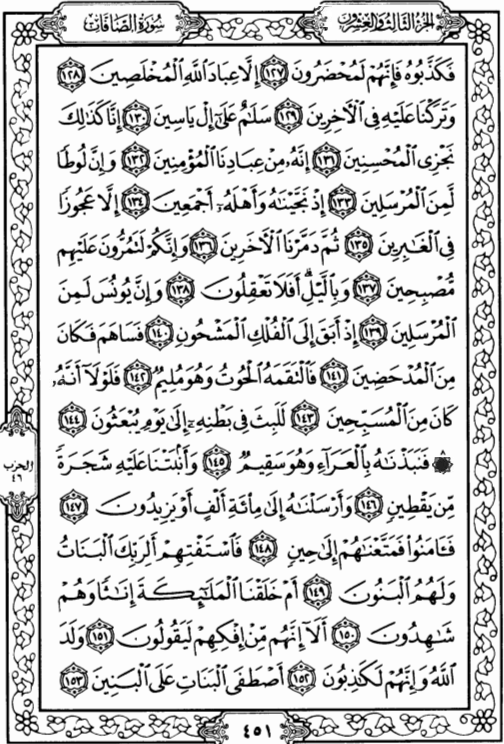 الجزء الثالث والعشرون
سورة الصافات
فَكَذَّبُوهُ فَإِنَّهُمْ لَمُحْضَرُونَ ١٢٧ إِلَّا عِبَادَ ٱللَّهِ ٱلْمُخْلَصِينَ ١٢٨
وَتَرَكْنَا عَلَيْهِ فِى ٱلْآخِرِينَ ١٢٩ سَلَٰمٌ عَلَىٰٓ إِلْ يَاسِينَ ١٣٠ إِنَّا كَذَٰلِكَ
نَجْزِى ٱلْمُحْسِنِينَ ١٣١ إِنَّهُۥ مِنْ عِبَادِنَا ٱلْمُؤْمِنِينَ ١٣٢ وَإِنَّ لُوطًا
لَّمِنَ ٱلْمُرْسَلِينَ ١٣٣ إِذْ نَجَّيْنَٰهُ وَأَهْلَهُۥٓ أَجْمَعِينَ ١٣٤ إِلَّا عَجُوزًا
فِى ٱلْغَٰبِرِينَ ١٣٥ ثُمَّ دَمَّرْنَا ٱلْآخَرِينَ ١٣٦ وَإِنَّكُمْ لَتَمُرُّونَ عَلَيْهِم
مُّصْبِحِينَ ١٣٧ وَبِٱلَّيْلِ ۗ أَفَلَا تَعْقِلُونَ ١٣٨ وَإِنَّ يُونُسَ لَمِنَ
ٱلْمُرْسَلِينَ ١٣٩ إِذْ أَبَقَ إِلَى ٱلْفُلْكِ ٱلْمَشْحُونِ ١٤٠ فَسَاهَمَ فَكَانَ
مِنَ ٱلْمُدْحَضِينَ ١٤١ فَٱلْتَقَمَهُ ٱلْحُوتُ وَهُوَ مُلِيمٌ ١٤٢ فَلَوْلَآ أَنَّهُۥ
كَانَ مِنَ ٱلْمُسَبِّحِينَ ١٤٣ لَلَبِثَ فِى بَطْنِهِۦٓ إِلَىٰ يَوْمِ يُبْعَثُونَ ١٤٤
۞ فَنَبَذْنَٰهُ بِٱلْعَرَآءِ وَهُوَ سَقِيمٌ ١٤٥ وَأَنۢبَتْنَا عَلَيْهِ شَجَرَةً
مِّن يَقْطِينٍ ١٤٦ وَأَرْسَلْنَٰهُ إِلَىٰ مِا۟ئَةِ أَلْفٍ أَوْ يَزِيدُونَ ١٤٧
فَـَٔامَنُوا۟ فَمَتَّعْنَٰهُمْ إِلَىٰ حِينٍ ١٤٨ فَٱسْتَفْتِهِمْ أَلِرَبِّكَ ٱلْبَنَاتُ
وَلَهُمُ ٱلْبَنُونَ ١٤٩ أَمْ خَلَقْنَا ٱلْمَلَٰٓئِكَةَ إِنَٰثًا وَهُمْ
شَٰهِدُونَ ١٥٠ أَلَآ إِنَّهُم مِّنْ إِفْكِهِمْ لَيَقُولُونَ ١٥١ وَلَدَ
ٱللَّهُ وَإِنَّهُمْ لَكَٰذِبُونَ ١٥٢ أَصْطَفَى ٱلْبَنَاتِ عَلَى ٱلْبَنِينَ ١٥٣
الحزب
٤٦
٤٥١